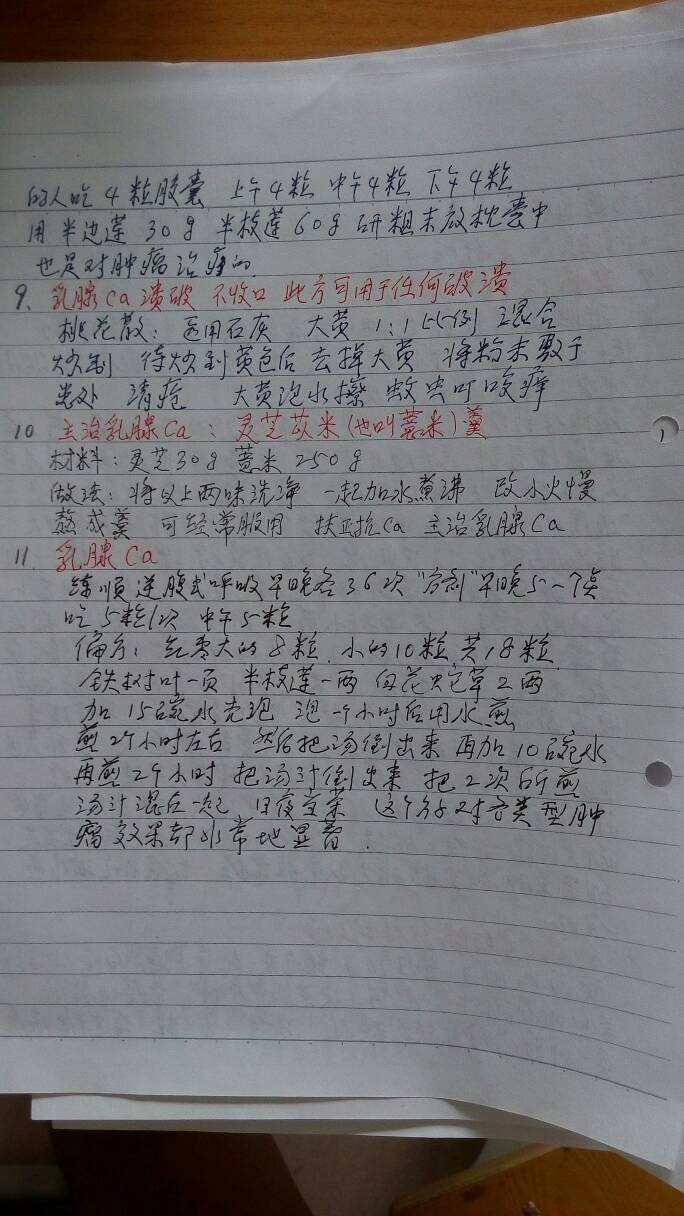 的人吃4粒胶囊 上午4粒 中午4粒 下午4粒
用半边莲30g 半枝莲60g 研粗末放枕囊中
也是对肿瘤治疗的.
9、乳腺Ca溃破 不收口 此方可用于任何破溃
桃花散：医用石灰 大黄 1:1比例 混合
炒制 待炒到黄色后去掉大黄 将粉末敷于
患处 清疮 大黄泡水擦 蚊虫叮咬痒
10 主治乳腺Ca：灵芝苡米(也叫薏米)羹
材料：灵芝30g 薏米250g
做法：将以上两味洗净 一起加水煮沸 改小火慢
熬成羹 可经常服用 扶正抗Ca 主治乳腺Ca
11. 乳腺Ca
练顺逆腹式呼吸早晚各36次 早晚5
吃5粒/次 中午5粒
偏方：红枣大的8粒 小的10粒 共18粒
铁树叶一页 半枝莲一两 白花蛇草2两
加15碗水先泡 泡一个小时后用水煎
煎2个小时左右 然后把汤倒出来 再加10碗水
再煎2个小时 把汤汁倒出来 把2次所煎
汤汁混在一起 日夜当茶 这个方子对各类型肿
瘤效果都非常地显著.
1